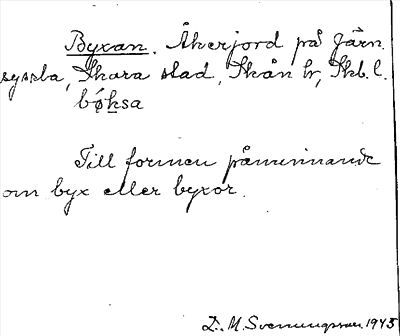 Byxan. Åkerjord på Järn
syssla, Skara stad, Skån hr, Skb. l.
bøksa
Till formen påminnande
om byx eller byxor.
D. M. Svenungsson. 1943